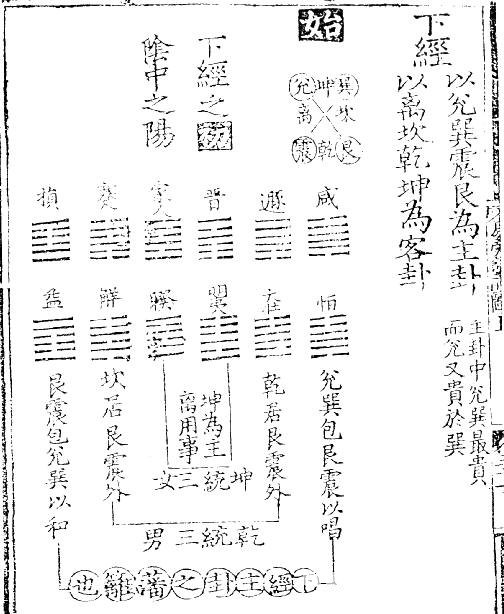 下經
以兌巽震艮為主卦
以离坎乾坤為客卦
主卦中兌巽最貴
而兌又貴於巽
始
下經之初
陰中之陽
巽坤兌
坎离
艮乾震
咸 遯 晉 家人 蹇 損
恒 明夷 睽 解 益
兌巽包艮震以唱
乾居艮震外
坤為主
离用事
坎居艮震外
艮震包兌巽以和
坤統三女
乾統三男
下經主卦之藩籬也